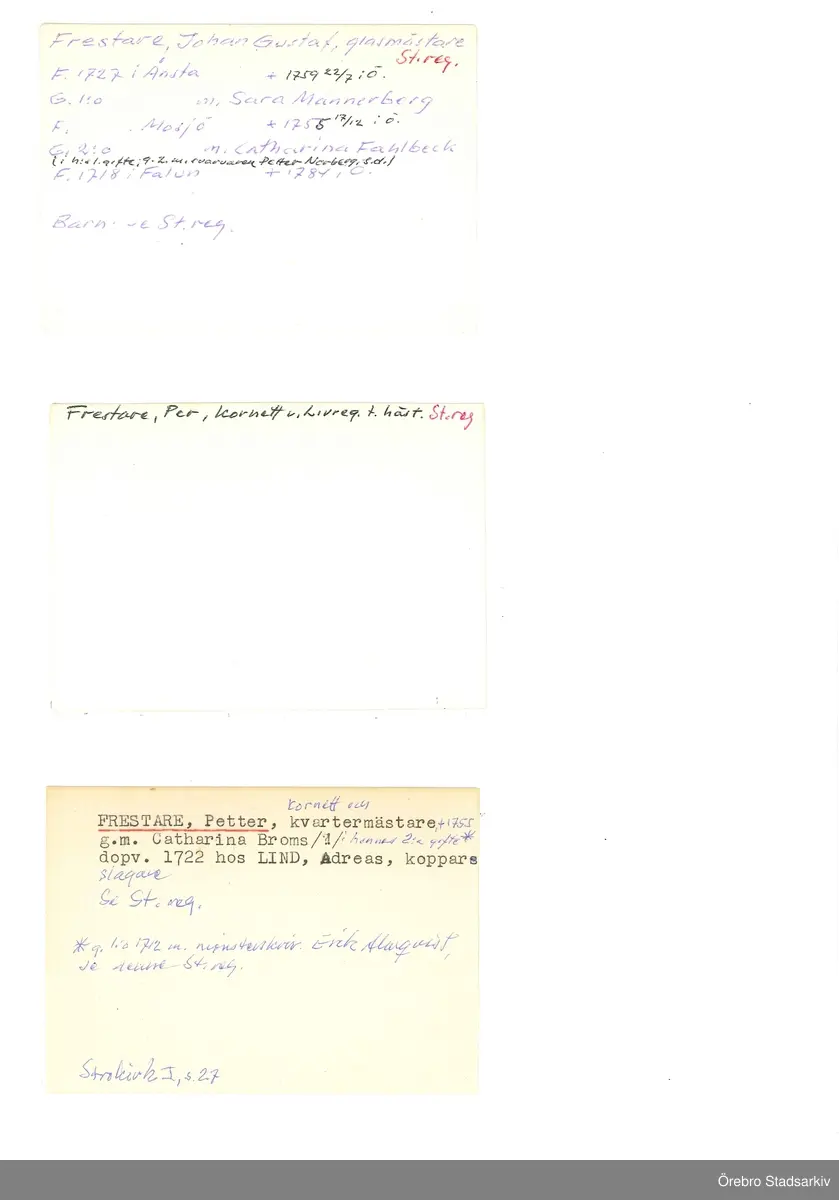 Frestare, Johan Gustaf, glasmästare
St.reg.
F. 1727 i Ånsta + 1759 22/7 i Ö.
G. 1:o m. Sara Mannerberg
F. Mosjö + 1755 17/12 i Ö.
G. 2:o m. Catharina Fahlbeck
(i h:s 1. gifte; g. 2. m. svarvaren Petter Norberg, s.d.)
F. 1718 i Falun + 1784 i Ö.
Barn: se St.reg.
Frestare, Per, kornett v. Livreg. t. häst. St.reg
kornett och
FRESTARE, Petter, kvartermästare, +1755
g.m. Catharina Broms/1/i hennes 2:a gifte*
dopv. 1722 hos LIND, Adreas, koppars
slagare
Se St.reg.
* g. 1:o 1712 m. mönsterskriv. Erik Almqvist,
se denne St.reg.
Strokirk I, s. 27
Örebro Stadsarkiv